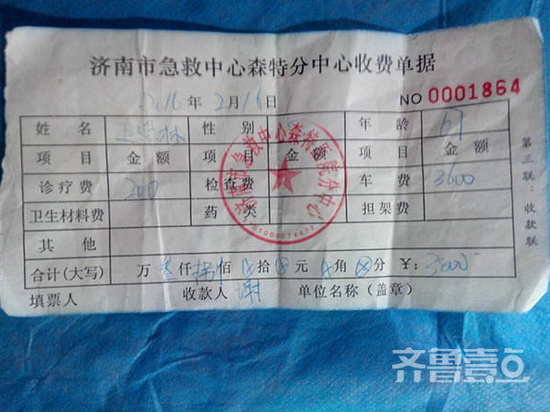 济南市急救中心森特分中心收费单据
2016年2月16日 NO 0001864
姓名 王 林 性别 年龄 67
项目 金额 项目 金额 项目 金额
诊疗费 200 检查费 车费 3600
卫生材料费 药类 担架费
其他
合计(大写) 万 仟 佰 拾 元 角 分 ¥:
填票人 收款人 谢 单位名称(盖章)
第三联:收款联
济南市急救中心森特医院分中心
齐鲁壹点